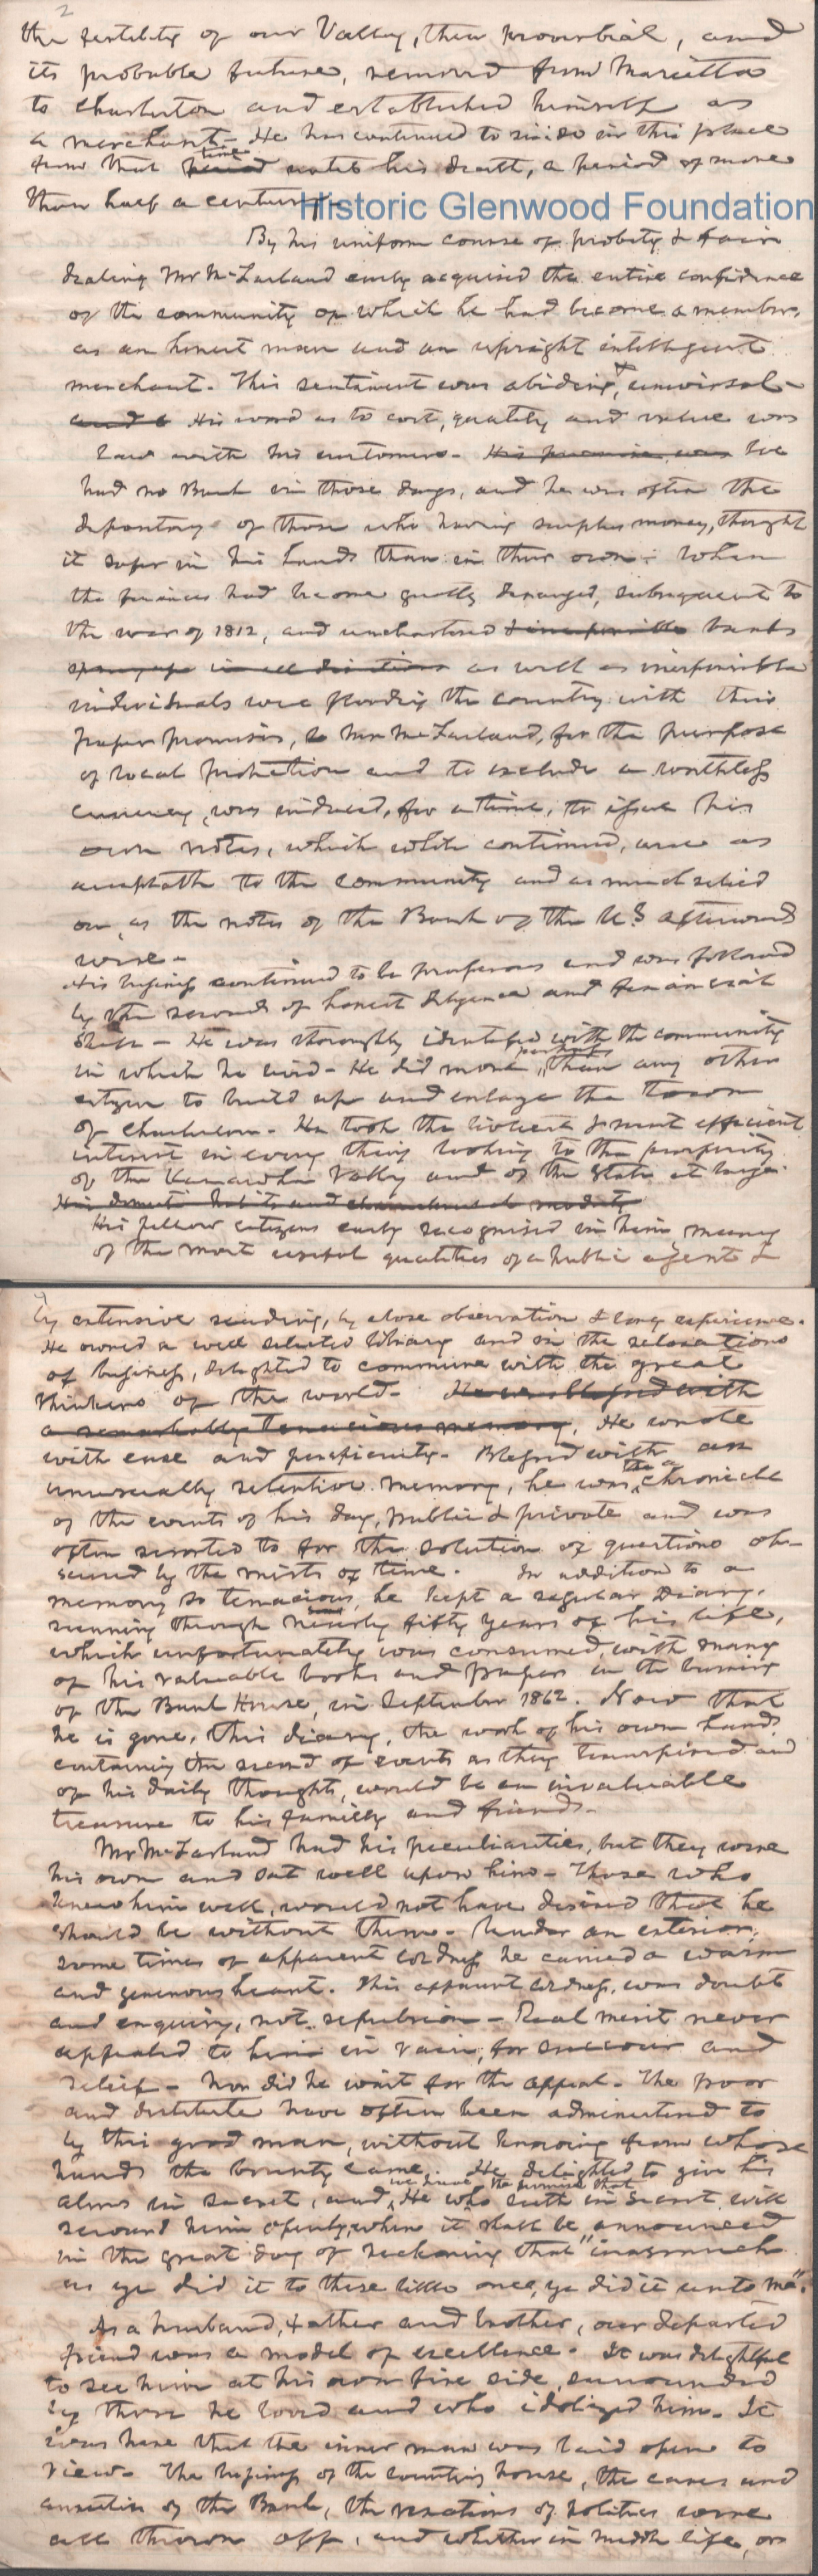 2
the fertility of our Valley, then proverbial, and
its probable future, removed from Marietta
to Charleston and established himself as
a merchant - He has continued to reside in this place
from that period time until his death, a period of more
than half a century -
Historic Glenwood Foundation
By his uniform course of probity & fair
dealing Mr McFarland early acquired the entire confidence
of the community of which he had become a member,
as an honest man and an upright intelligent
merchant. This sentiment was abiding & universal -
and His word as to cost, quality and value was
law with his customers - His promise was We
had no Bank in those days, and he was often the
depository of those who having surplus money, thought
it safer in his hands than in their own. When
the finances had become greatly deranged, subsequent to
the war of 1812, and unchartered irresponsible banks
sprung up in all directions as well as irresponsible
individuals were flooding the country with their
paper promises, Mr McFarland, for the purpose
of local protection and to exclude a worthless
currency, was induced, for a time, to issue his
own notes, which while continued, were as
acceptable to the community and as much relied
on, as the notes of the Bank of the U.S. afterwards
were -
His business continued to be prosperous and was followed
by the rewards of honest diligence and financial
skill - He was thoroughly identified with the community
in which he lived - He did more perhaps than any other
citizen to build up and enlarge the town
of Charleston - He took the liveliest & most efficient
interest in every thing looking to the prosperity
of the Kanawha Valley and of the State at large.
His domestic habits and modesty
His fellow citizens early recognised in him many
of the most useful qualities of a public agent &
by extensive reading, by close observation & long experience.
He owned a well selected library and in the relaxations
of business, delighted to commune with the great
thinkers of the world - He was blessed with
a remarkably tenacious memory. He wrote
with ease and perspicuity - Blessed with an
unusually retentive memory, he was the chronicle
of the events of his day, public & private and was
often resorted to for the solution of questions ob-
scured by the mists of time. In addition to a
memory so tenacious, he kept a regular Diary,
running through nearly fifty years of his life,
which unfortunately was consumed, with many
of his valuable books and papers in the burning
of the Bank House, in September 1862. Now that
he is gone, this diary, the work of his own hand,
containing the record of events as they transpired and
of his daily thoughts, would be an invaluable
treasure to his family and friends -
Mr McFarland had his peculiarities, but they were
his own and sat well upon him - Those who
knew him well, would not have desired that he
should be without them - Under an exterior,
some times of apparent coldness he carried a warm
and generous heart. This apparent coldness, was doubt
and enquiry, not repulsion - Real merit never
appealed to him in vain, for succour and
relief - Nor did he wait for the appeal - The poor
and destitute have often been administered to
by this good man, without knowing from whose
hands the bounty came. He delighted to give his
alms in secret, and we have the promise that He who seeth in secret will
reward him openly, when it shall be announced
in the great day of reckoning that "inasmuch
as ye did it to these little ones, ye did it unto me".
As a husband, father and brother, our departed
friend was a model of excellence. It was delightful
to see him at his own fire side, surrounded
by those he loved and who idolized him. It
was here that the inner man was laid open to
view - The business of the counting house, the cares and
anxieties of the Bank, the vexations of politics were
all thrown off, and whether in middle life, or